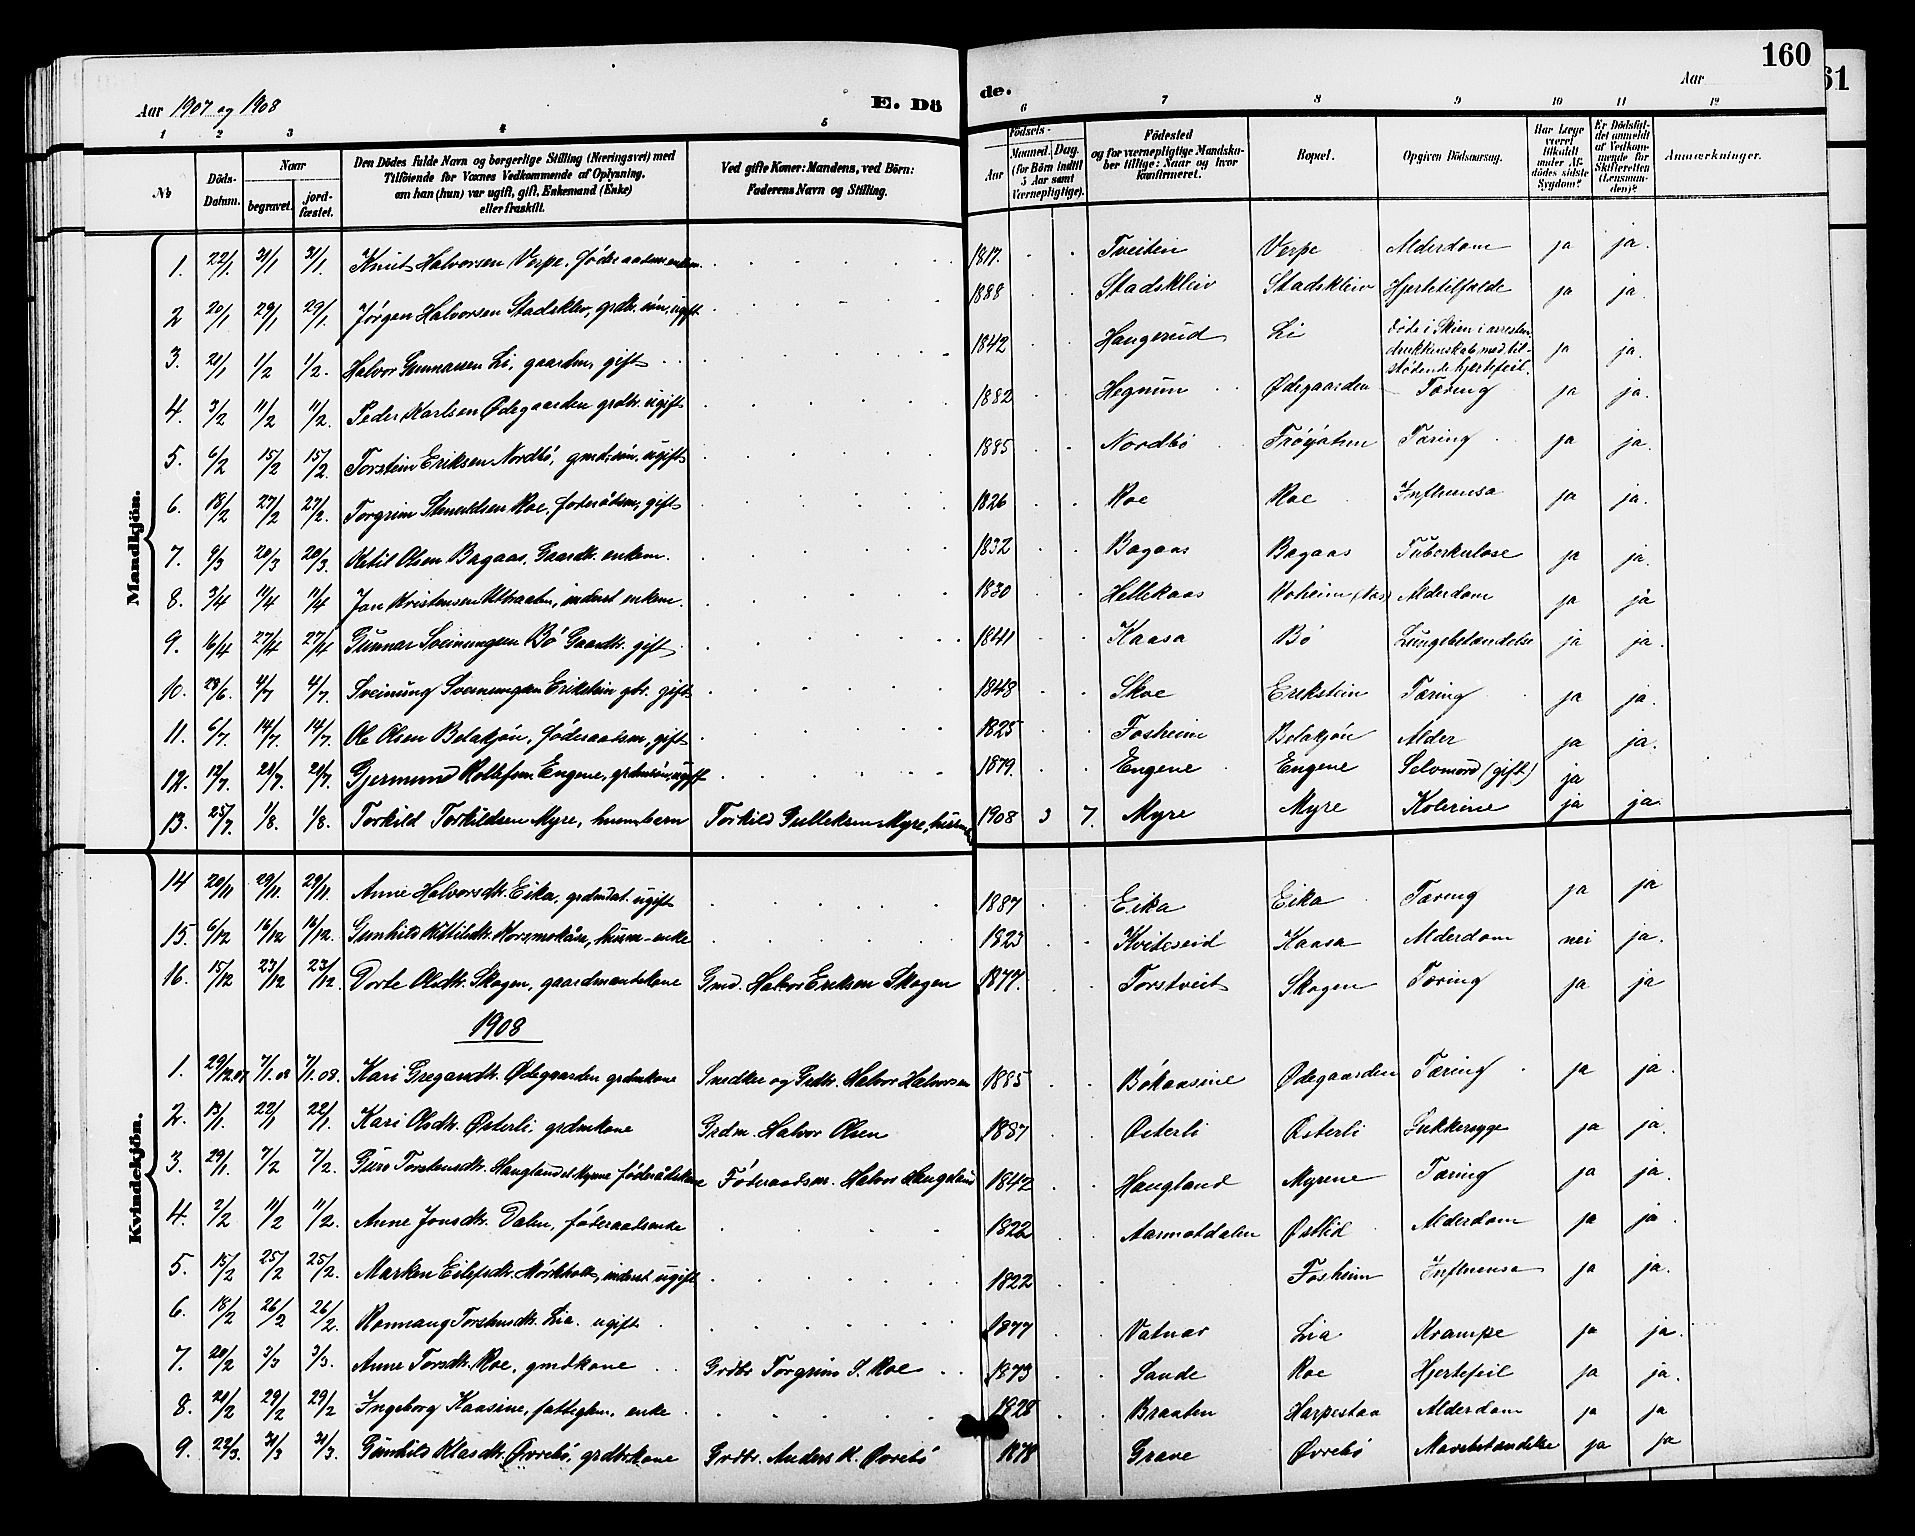 160
61
Aar 1907 og 1908
E. Dö
de.
Aar
1 2 3 4 5 6 7 8 9 10 11 12
No
Döds-Datum.
Naar
begravet.
jordfæstet.
Den Dödes fulde Navn og borgerlige Stilling (Næringsvei) med
Tilföiende for Voxnes Vedkommende af Oplysning,
om han (hun) var ugift, gift, Enkemand (Enke)
eller fraskilt.
Ved gifte Koner: Mandens, ved Börn:
Faderens Navn og Stilling.
Födsels-
Aar
Maaned. Dag.
(for Börn indtil 5 Aar samt Værnepligtige).
Födested
og for værnepligtige Mandskaber tillige: Naar og hvor konfirmeret.
Bopæl.
Opgiven Dödsaarsag.
Har Læge været tilkaldt under Afdödes sidste Sygdom?
Er Dödsfaldet anmeldt af Vedkommende for Skifteretten (Lensmanden)?
Anmærkninger.
Mandkjön.
1. 22/1 31/1 31/1. Knut Halvorsen Verpe, föderaadsm enkem. 1817. Tveiten Verpe Alderdom ja ja.
2 20/1 29/1 29/1. Jörgen Halvorsen Stadskleiv, grdbr. sön, ugift 1888 Stadskleiv Stadskleiv Hjertetilfælde ja ja.
3. 21/1 1/2 1/2. Halvor Gunnarsen Li, gaardm, gift 1842 Haugerud Li döde i Skien i arresten drukkenskab med tilstødende hjertefeil. ja ja.
4. 3/2 11/2 11/2. Peder Karlsen Ödegaarden grdbr. ugift 1882 Hegnum Ødegaarden Tæring ja ja.
5. 6/2 15/2 15/2. Torstein Eriksen Nordbö, gmd. sön, ugift 1885 Nordbö Tæring ja ja.
6. 18/2 27/2 27/2. Torgrim Roe, foderådsm, gift 1826 Roe Roe Influensa ja ja.
7. 9/3 20/3 20/3. Ketil Olsen Bagaas, Gaardbr. enkem. 1832 Bagaas Bagaas Tuberkulose ja ja.
8. 3/4 11/4 11/4 Jan Kristensen inderst enkem. 1830 Hellekaas Alderdom ja ja
9. 16/4 27/4 27/4 Gunnar Sveinungsen Bö Gaardbr. gift 1841 Kaasa Bö Lungebetændelse ja ja.
10. 28/6. 4/7 4/7. Sveinung Sveinungsen Erikstein gbr. gift 1848 Skoe Erikstein Tæring ja ja.
11. 6/7. 14/7 14/7. Ole Olsen Belakjön, föderaadsm, gift 1825 Fosheim Belakjön Alder ja ja.
12. 12/7. 21/7. 21/7. Gjermund Rollefsen Engene, grdmsön, ugift 1879. Engene Engene Selvmord (gift) ja
13. 25/7 1/8. 1/8. Torkild Torkildsen Myre, husm. barn Torkild Gulleksen Myre, husm. 1908 3 7. Myre Myre Kolerine ja ja.
Kvindekjön.
14 20/11 29/11 29/11. Anne Halvorsdtr. Eika, grdmdat. ugift 1887 Eika Eika Tæring ja ja
15. 6/12 16/12 16/12. Gunhild Kittilsdtr. husm-enke 1823 Kviteseid Kaasa Alderdom nei ja.
16. 15/12 23/12 23/12. Dorte Olsdtr. Skogen, gaardmandskone Gmd. Halvor Eriksen Skogen 1877. Torstveit Skogen Tæring ja ja
1908
1. 29/12.07 7/1.08 7/1.08. Kari Gregardtr. Ødegaarden grdmkone Snedker og Grdbr. Halvor Halvorsen 1885 Bökaasine Ødegaarden Tæring ja ja.
2. 13/1. 22/1 22/1. Kari Olsdtr. Østerli, grdmkone Grdm. Halvor Olsen 1887 Österli Österli Sukkersyge ja ja.
3. 29/1. 7/2 7/2. Guro Torstensdtr. Haugland el. Myrene föderådskone Föderaadsm. Halvor Haugeland 1842 Haugland Myrene Tæring ja ja.
4. 2/2 11/2 11/2. Anne Jonsdtr. Dalen, föderaadsenke 1822 Aarmotdalen Østlid Alderdom ja ja
5. 15/2 25/2 25/2. Marken Eilefsdtr. Mörkholt, inderst ugift 1822 Fosheim Influensa ja ja.
6. 18/2 26/2 26/2. Rannaug Torstensdtr. Lia. ugift 1877 Vatnar Lia Krampe ja ja.
7. 20/2 3/3 3/3. Anne Torsdtr. Roe, gmdkone Grdbr Torgrim S. Roe 1873 Sande Roe Hjertefeil ja ja.
8. 21/2 29/2 29/2 Ingeborg Kaasine, fattiglem, enke 1828 Braaten Harpestaa Alderdom ja ja
9. 22/3. 31/3 31/3. Gunhild Klasdtr. Øvrebö, grdbrkone Grdbr. Anders K. Øvrebö 1878 Grave Øvrebö Mavebetændelse ja ja